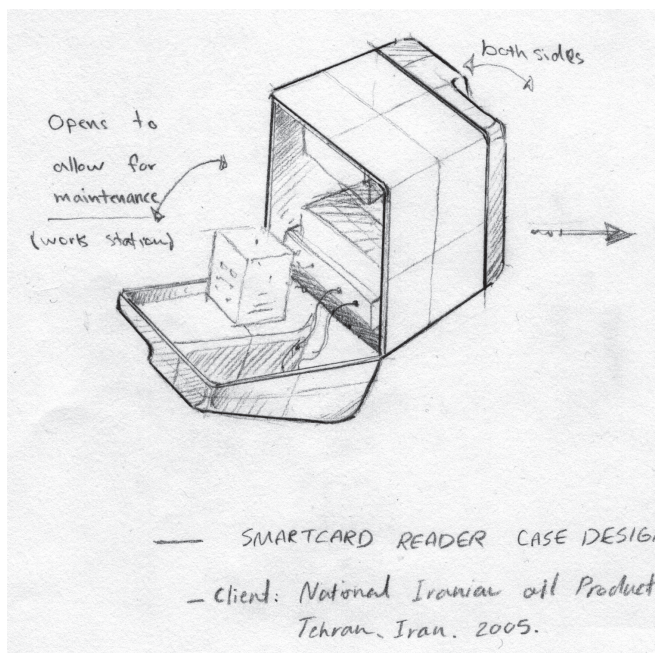 both sides
Opens to
allow for
maintenance
(work station)
— SMARTCARD READER CASE DESIG
– Client: National Iranian oil Product
Tehran, Iran. 2005.